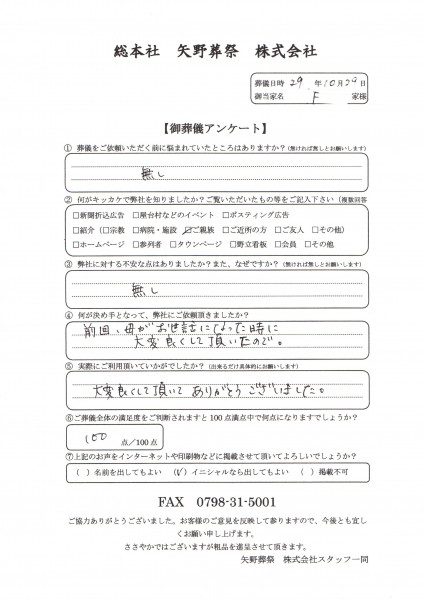 総本社 矢野葬祭 株式会社
葬儀日時 29 年 10月29日
御当家名 F 家様
【御葬儀アンケート】
① 葬儀をご依頼いただく前に悩まれていたところはありますか?(無ければ無しとお願いします)
無し
② 何がキッカケで弊社を知りましたか?ご覧いただいたもの等をご記入下さい(複数回答
□新聞折込広告 □屋台村などのイベント □ポスティング広告
□紹介(□宗教 □病院・施設 ☑ご親族 □ご近所の方 □ご友人 □その他)
□ホームページ □参列者 □タウンページ □野立看板 □会員 □その他
③ 弊社に対する不安な点はありましたか?また、なぜですか?(無ければ無しとお願いします)
無し
④ 何が決め手となって、弊社にご依頼頂きましたか?
前回、母がお世話になった時に
大変良くして頂いたので。
⑤ 実際にご利用頂いていかがでしたか?(出来るだけ具体的にお願いします)
大変良くして頂いて ありがとうございました。
⑥ご葬儀全体の満足度をご判断されますと100点満点中で何点になりますでしょうか?
100 点/100点
⑦上記のお声をインターネットや印刷物などに掲載させて頂いてよろしいでしょうか?
( )名前を出してもよい (✓)イニシャルなら出してもよい ( )掲載不可
FAX 0798-31-5001
ご協力ありがとうございました。お客様のご意見を反映して参りますので、今後とも宜し
くお願い申し上げます。
ささやかではございますが粗品を進呈させて頂きます。
矢野葬祭 株式会社スタッフ一同